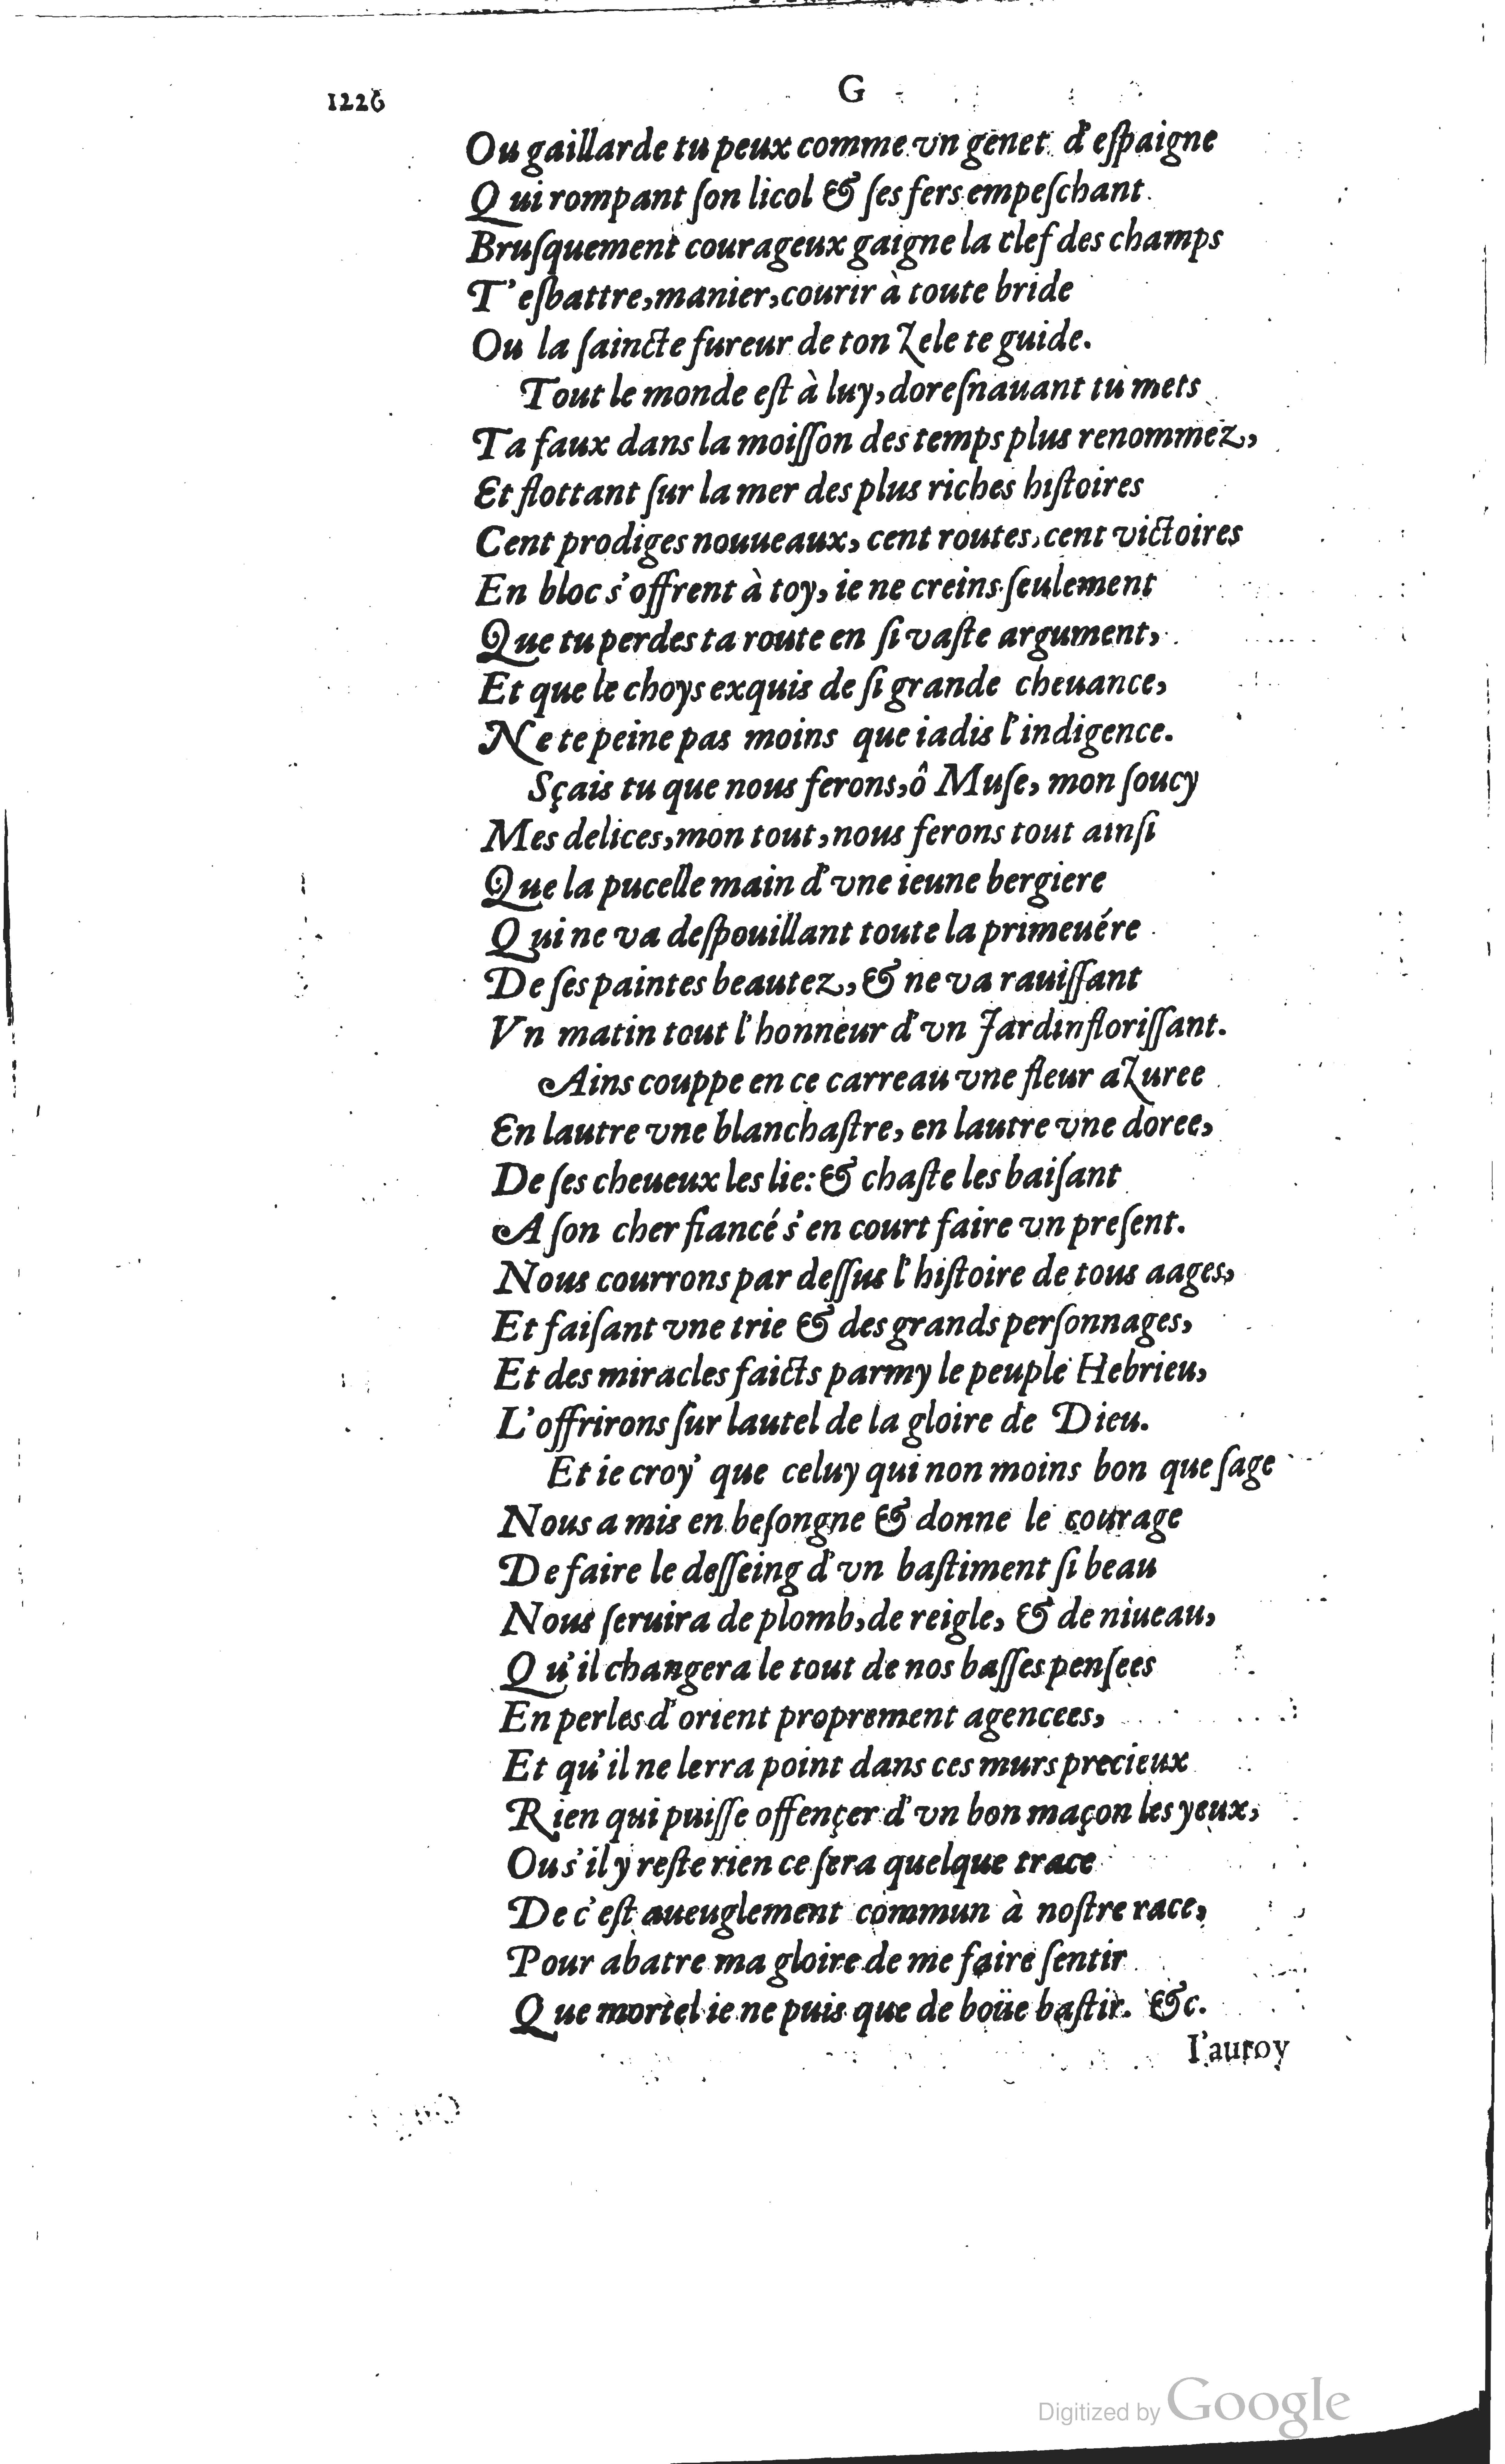 1226
G
Ou gaillarde tu peux comme vn genet d'eſpaigne
Qui rompant ſon licol & ſes fers empeſchant
Bruſquement courageux gaigne la clef des champs
T'eſbattre, manier, courir à toute bride
Ou la ſaincte fureur de ton Zele te guide.
Tout le monde eſt à luy, doreſnauant tu mets
Ta faux dans la moiſſon des temps plus renommez,
Et flottant ſur la mer des plus riches hiſtoires
Cent prodiges nouueaux, cent routes, cent victoires
En bloc s'offrent à toy, ie ne creins ſeulement
Que tu perdes ta route en ſi vaſte argument,
Et que le choys exquis de ſi grande cheuance,
Ne te peine pas moins que iadis l'indigence.
Sçais tu que nous ferons, ô Muſe, mon ſoucy
Mes delices, mon tout, nous ferons tout ainſi
Que la pucelle main d'vne ieune bergiere
Qui ne va deſpouillant toute la primeuére
De ſes paintes beautez, & ne va rauiſſant
Vn matin tout l'honneur d'vn Jardin floriſſant.
Ains couppe en ce carreau vne fleur aZuree
En lautre vne blanchaſtre, en lautre vne doree,
De ſes cheueux les lie: & chaſte les baiſant
A ſon cher fiancé s'en court faire vn preſent.
Nous courrons par deſſus l'hiſtoire de tous aages,
Et faiſant vne trie & des grands perſonnages,
Et des miracles faicts parmy le peuple Hebrieu,
L'offrirons ſur lautel de la gloire de Dieu.
Et ie croy' que celuy qui non moins bon que ſage
Nous a mis en beſongne & donne le courage
De faire le deſſeing d'vn baſtiment ſi beau
Nous ſeruira de plomb, de reigle, & de niueau,
Qu'il changera le tout de nos baſſes penſees
En perles d'orient proprement agencees,
Et qu'il ne lerra point dans ces murs precieux
Rien qui puiſſe offençer d'vn bon maçon les yeux,
Ou s'il y reſte rien ce ſera quelque trace
De c'eſt aueuglement commun à noſtre race,
Pour abatre ma gloire de me faire ſentir
Que mortel ie ne puis que de boüe baſtir. &c.
I'auroy
Digitized by Google